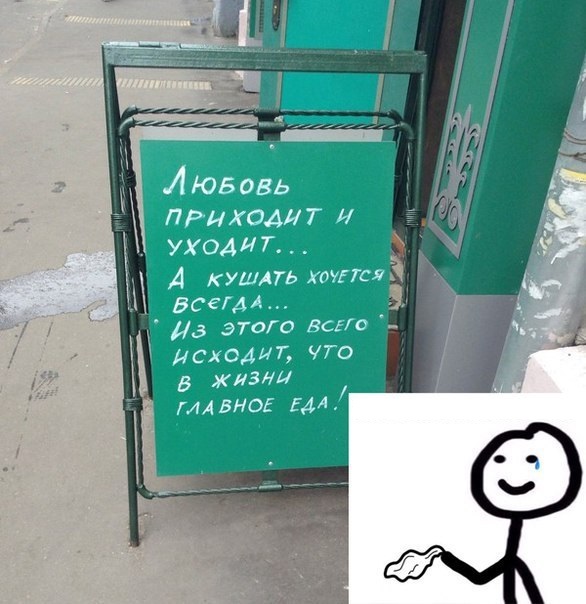 Любовь
приходит и
уходит...
А кушать хочется
всегда...
Из этого всего
исходит, что
в жизни
главное еда!